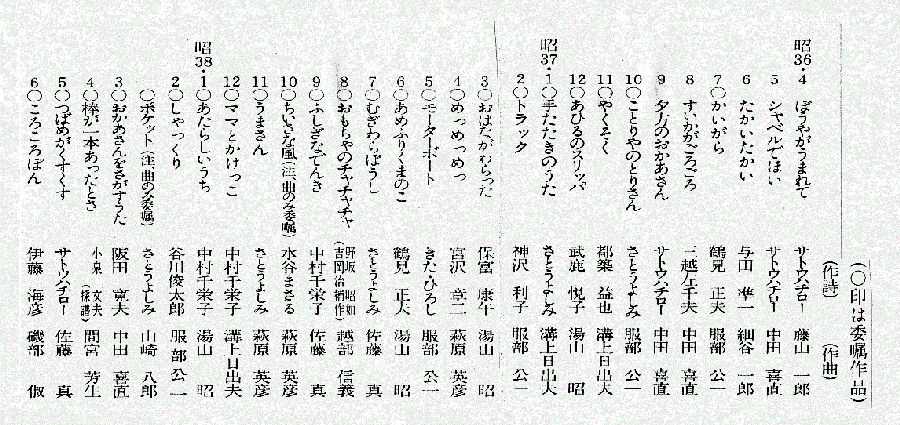 (〇印は委嘱作品)
(作詩) (作曲)
昭36・4 ぼうやがうまれて サトウハチロー 藤山 一郎
5 シャベルでほい サトウハチロー 中田 喜直
6 たかいたかい 与田 凖一 細谷 一郎
7〇かいがら 鶴見 正夫 服部 公一
8 すいかがごろごろ 三越左千夫 中田 喜直
9 夕方のおかあさん サトウハチロー 中田 喜直
10〇ことりやのとりさん さとうよしみ 服部 公一
11〇やくそく 都築 益也 溝上日出夫
12〇あひるのスリッパ 武鹿 悦子 湯山 昭
昭37・1〇手たたきのうた さとうよしみ 溝上日出夫
2〇トラック 神沢 利子 服部 公一
3〇おはながわらった 保富 康午 湯山 昭
4〇めっめっめっ 宮沢 章二 萩原 英彦
5〇モーターボート きたひろし 服部 公一
6〇あめふりくまのこ 鶴見 正夫 湯山 昭
7〇むぎわらぼうし さとうよしみ 佐藤 真
8〇おもちゃのチャチャチャ 野坂 昭如 (吉岡治補作) 越部 信義
9〇ふしぎなでんき 中村千栄子 佐藤 真
10〇ちいさな風(注、曲のみ委嘱) 水谷まさる 萩原 英彦
11〇うまさん さとうよしみ 萩原 英彦
12〇ママとかけっこ 中村千栄子 溝上日出夫
昭38・1〇あたらしいうち 中村千栄子 湯山 昭
2〇しゃっくり 谷川俊太郎 服部 公一
〇ポケット(注、曲のみ委嘱) さとうよしみ 山崎 八郎
3〇おかあさんをさがすうた 阪田 寛夫 中田 喜直
4〇棒が一本あったとさ 小泉 文夫 (採譜) 間宮 芳生
5〇つばめがくすくす サトウハチロー 佐藤 真
6〇ころころぽん 伊藤 海彦 磯部 俶